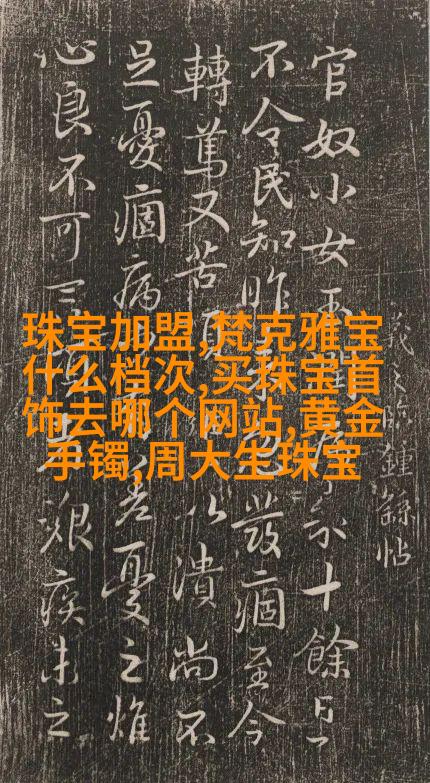 珠宝加盟,梵克雅宝
什么档次,买珠宝首
饰去哪个网站,黄金
手镯,周大生珠宝
羲之臨鍾繇帖
官奴小女玉十餘日
不令民知昨發痼至今
轉篤又苦以潰尚不
足憂痼病者憂之燋
心良不可言艱疾未之